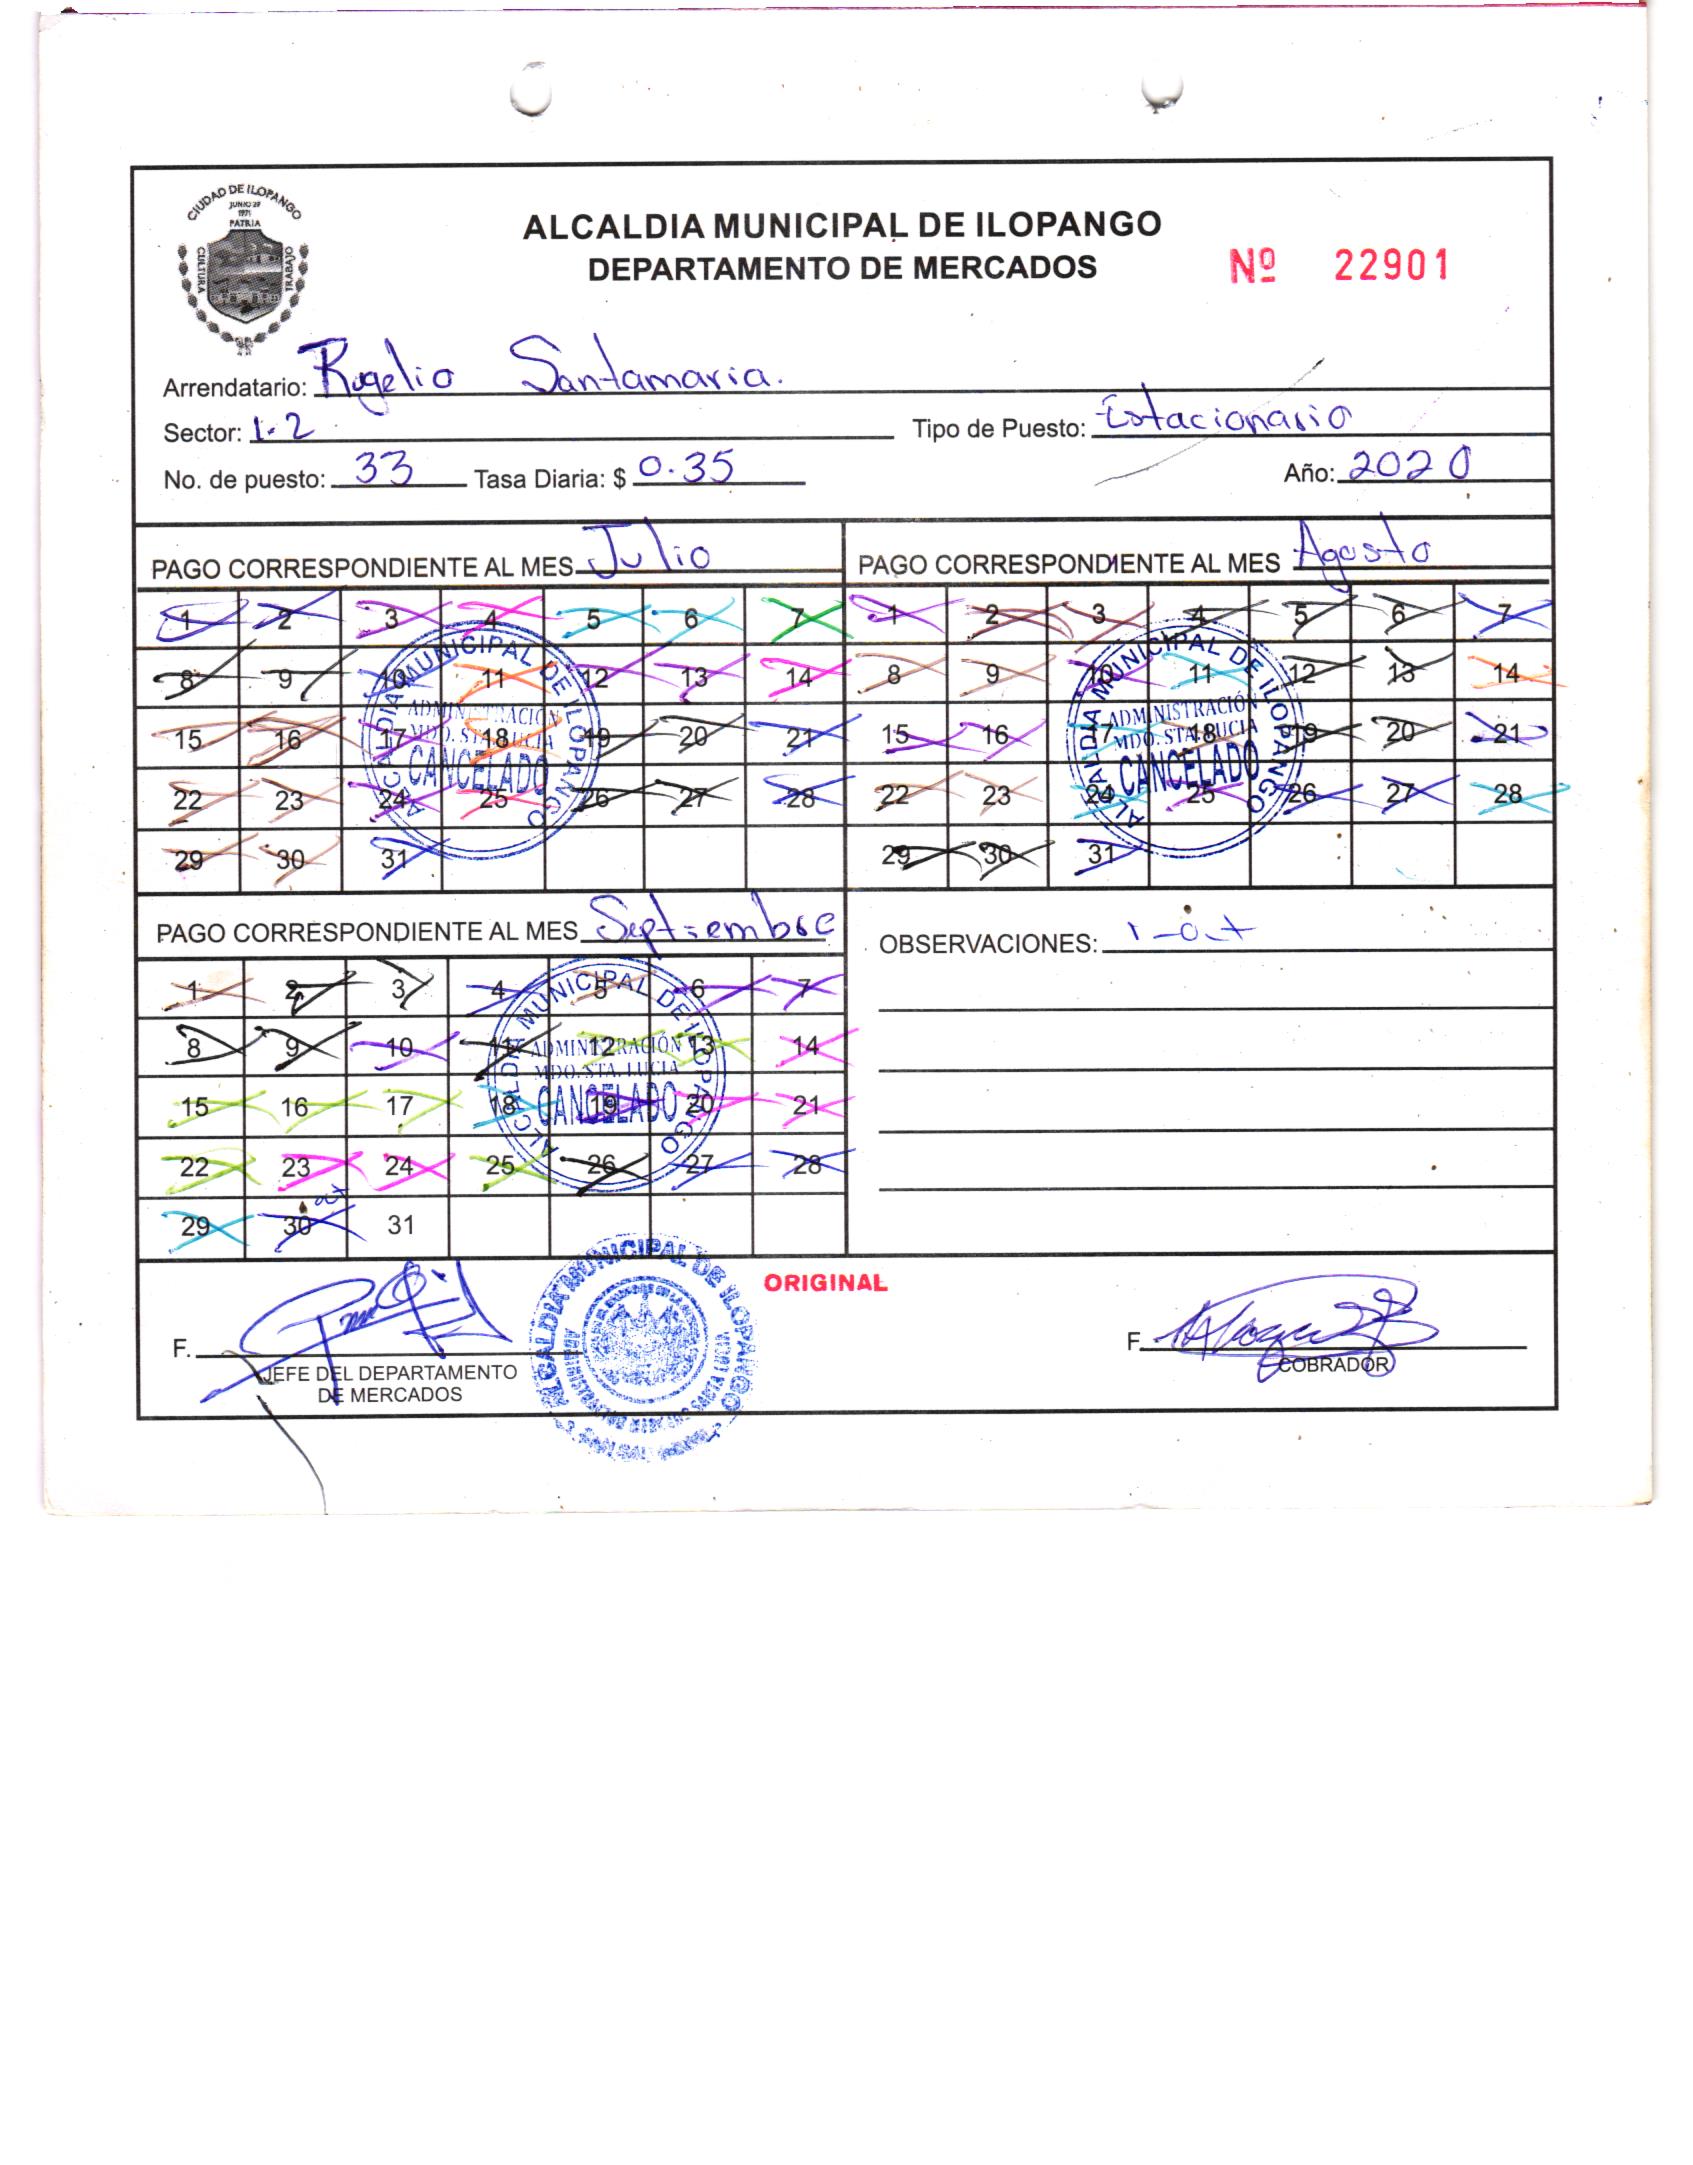 CIUDAD DE ILOPANGO
JUNIO 29
1971
PATRIA
CULTURA
TRABAJO
ALCALDIA MUNICIPAL DE ILOPANGO
DEPARTAMENTO DE MERCADOS
Nº 22901
Arrendatario: Rogelio Santamaria.
Sector: 1-2 Tipo de Puesto: Estacionario
No. de puesto: 33 Tasa Diaria: $ 0.35 Año: 2020
PAGO CORRESPONDIENTE AL MES Julio
1 2 3 4 5 6 7
8 9 10 11 12 13 14
15 16 17 18 19 20 21
22 23 24 25 26 27 28
29 30 31
ALCALDIA MUNICIPAL DE ILOPANGO
ADMINISTRACIÓN
MDO. STA. LUCIA
CANCELADO
PAGO CORRESPONDIENTE AL MES Agosto
1 2 3 4 5 6 7
8 9 10 11 12 13 14
15 16 17 18 19 20 21
22 23 24 25 26 27 28
29 30 31
ALCALDIA MUNICIPAL DE ILOPANGO
ADMINISTRACIÓN
MDO. STA. LUCIA
CANCELADO
PAGO CORRESPONDIENTE AL MES Septiembre
1 2 3 4 5 6 7
8 9 10 11 12 13 14
15 16 17 18 19 20 21
22 23 24 25 26 27 28
29 30 oct 31
ALCALDIA MUNICIPAL DE ILOPANGO
ADMINISTRACIÓN
MDO. STA. LUCIA
CANCELADO
OBSERVACIONES: 1-oct
ORIGINAL
F.
JEFE DEL DEPARTAMENTO
DE MERCADOS
ALCALDIA MUNICIPAL DE ILOPANGO
F.
COBRADOR